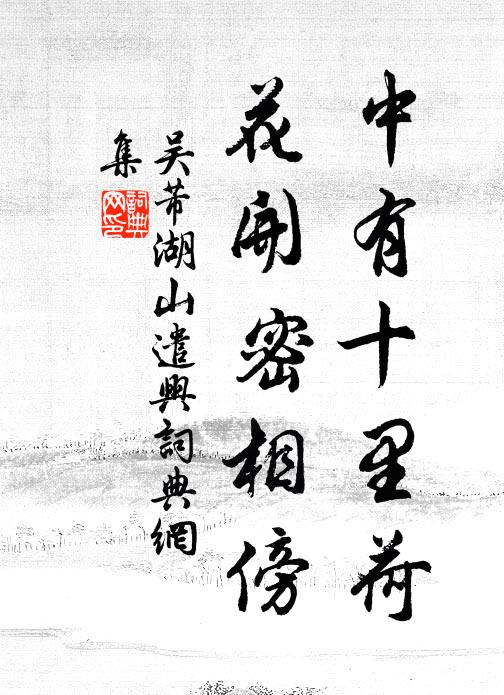 中有十里荷
花開密相傍
吳芾湖山遣興詞典網
集
詞典
网印